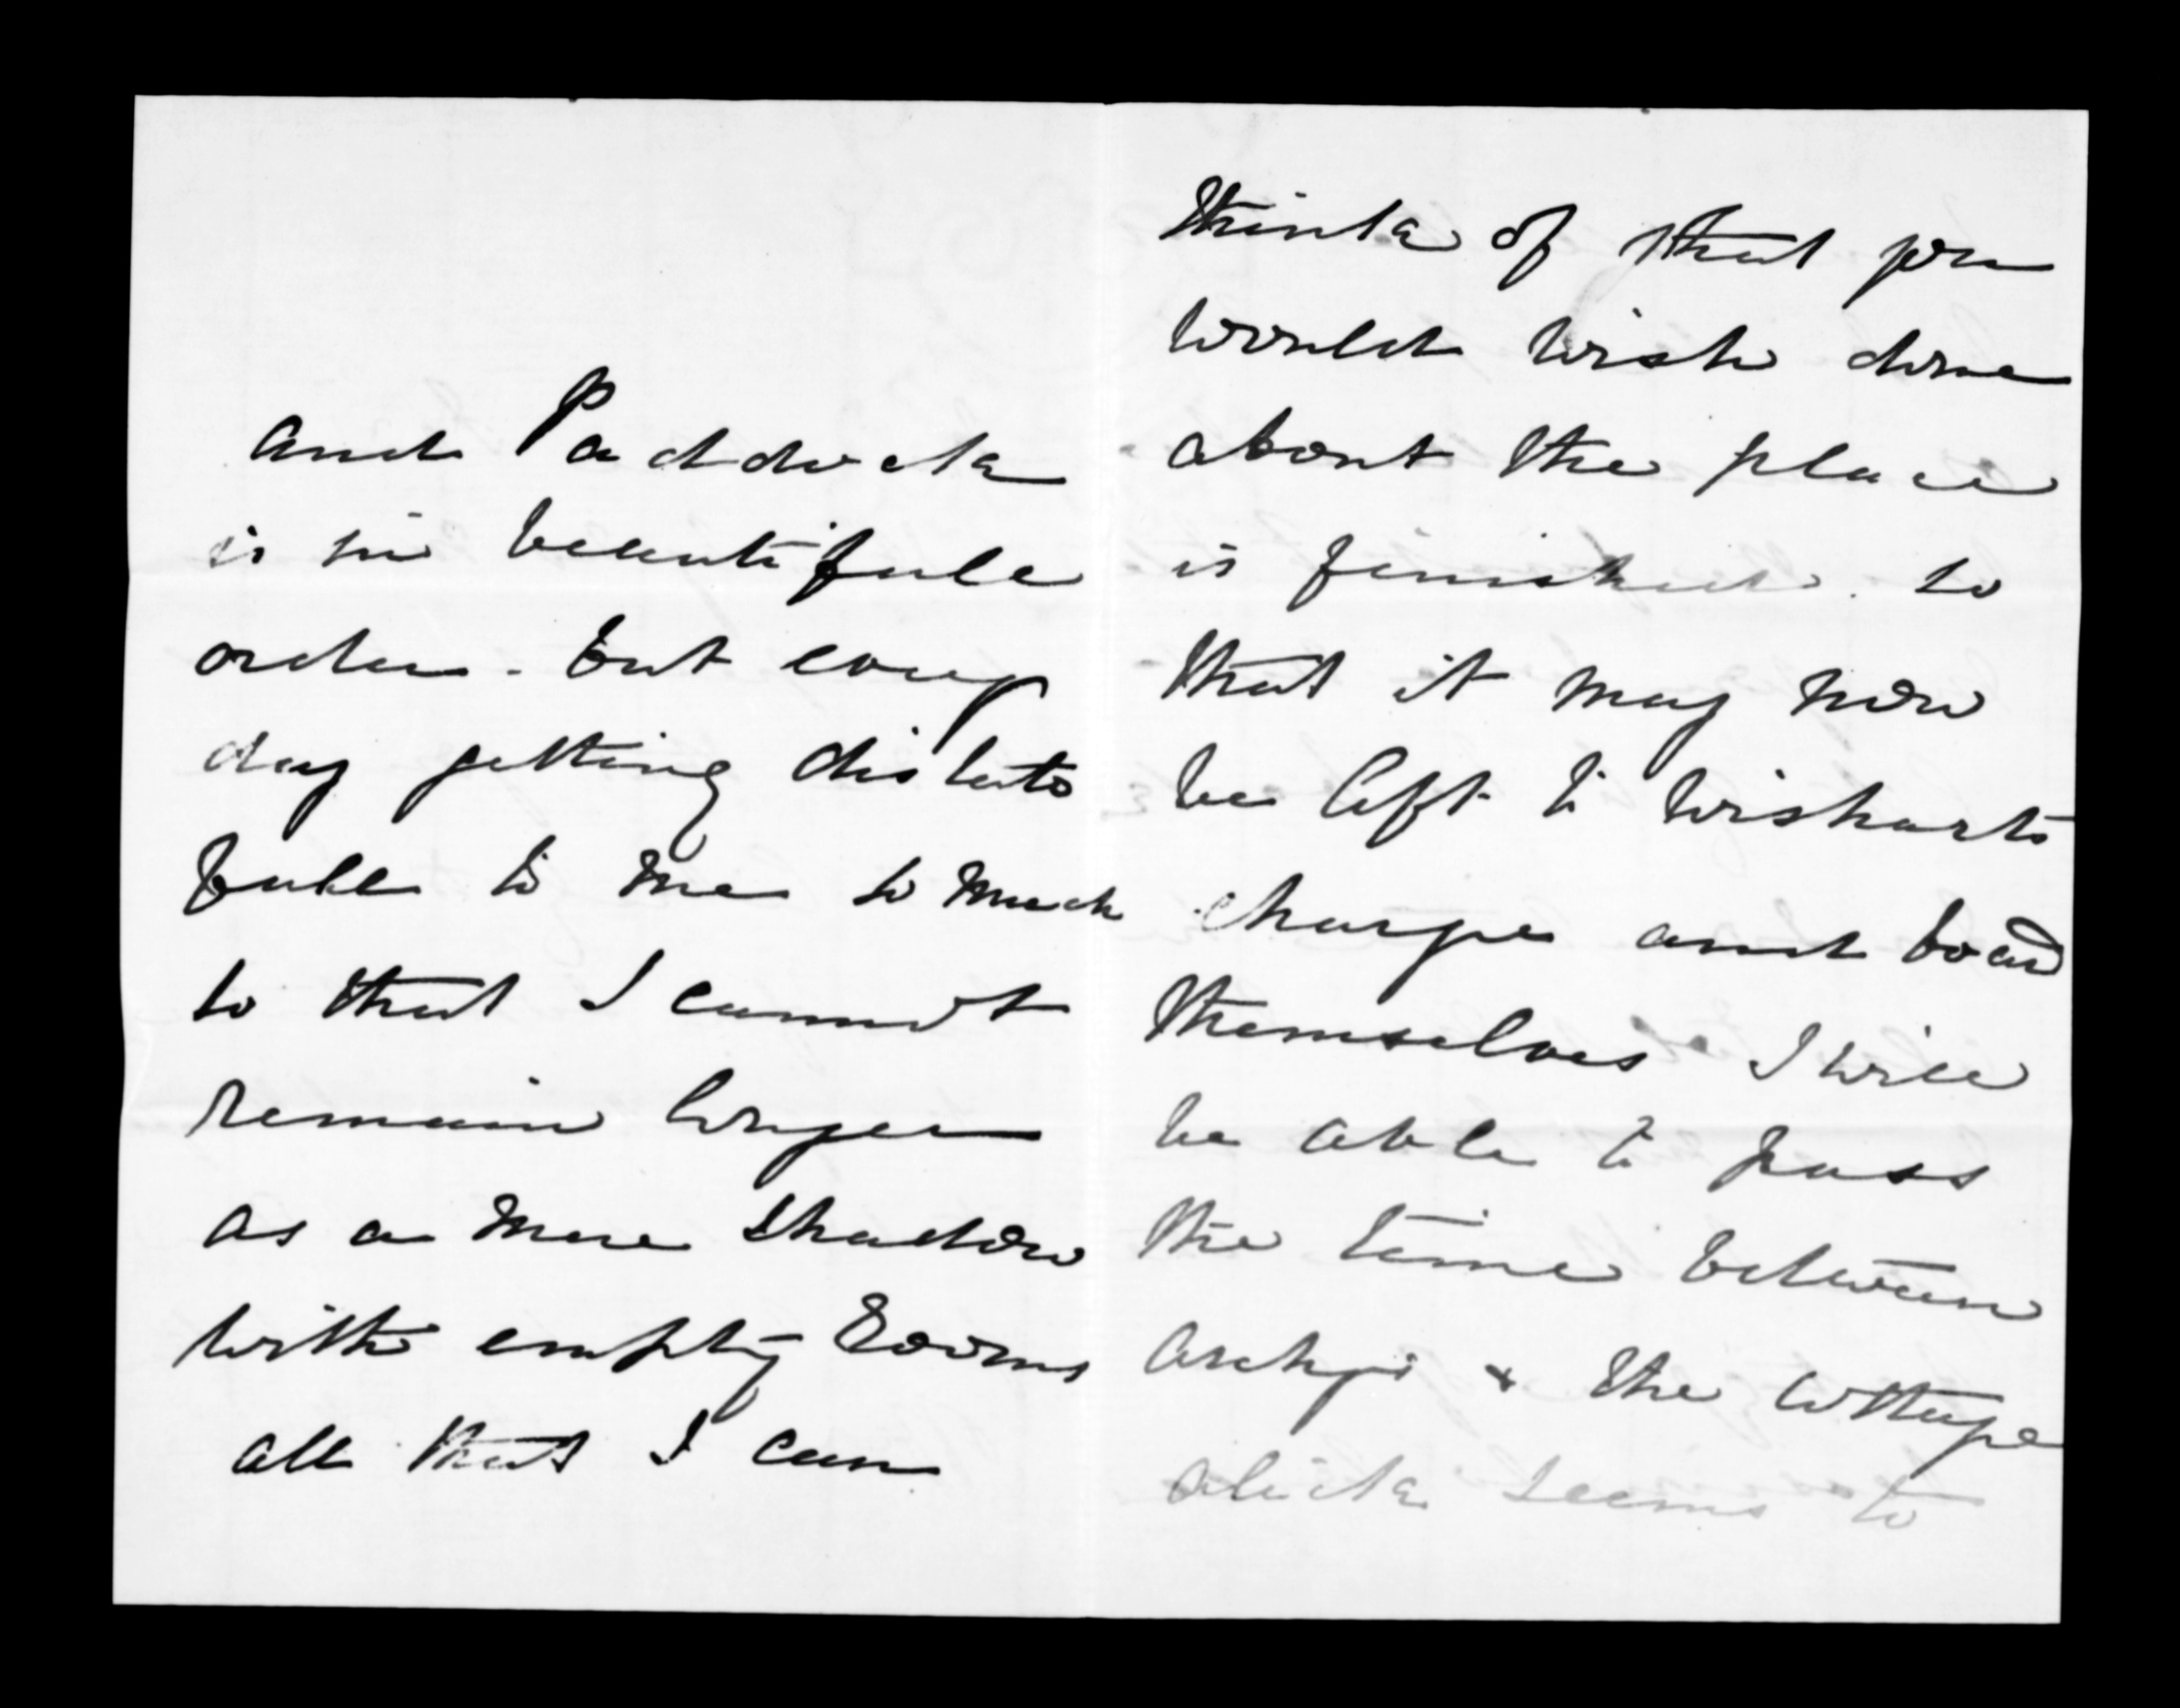 and Paddock
is in beautifull
order. but every
day getting distaste
full to me so much
so that I cannot
remain longer
as a mere shadow
with empty Rooms
all that I can
think of that you
would wish done
about the place
is finished. so
that it may now
be left to Wisharts
charge and board
themselves I will
be able to pass
the time between
& the Cottage
Alick seems to